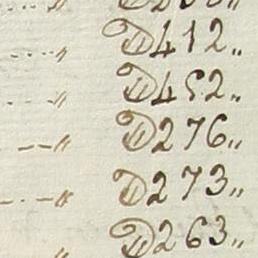 ....〃 D412〃
....〃 D452〃
——〃 D276〃
—.—〃 D273〃
〃 D263〃